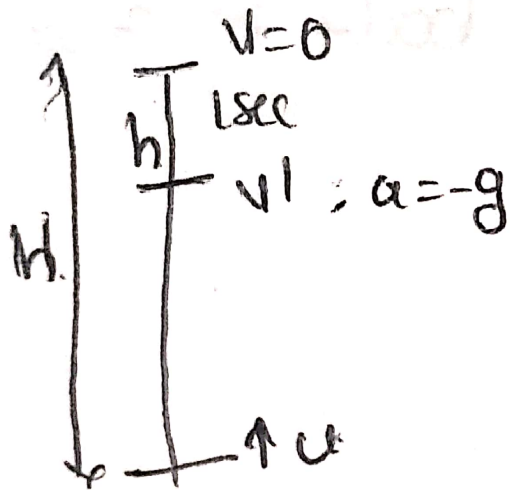 V=0
1sec
h
v' ; a=-g
H
↑ u